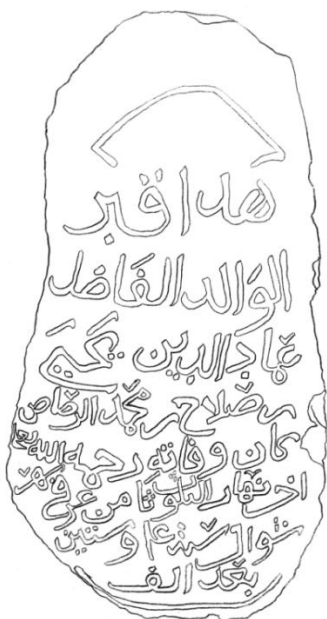 هذا قبر
الوالد الفاضل
عماد الدين يحيى
بن صلاح بن محمد الرصاص
كان وفاته رحمه الله
اخر نهار الثلوث ثامن في شهر
شوال سنة وستين
بعد الف